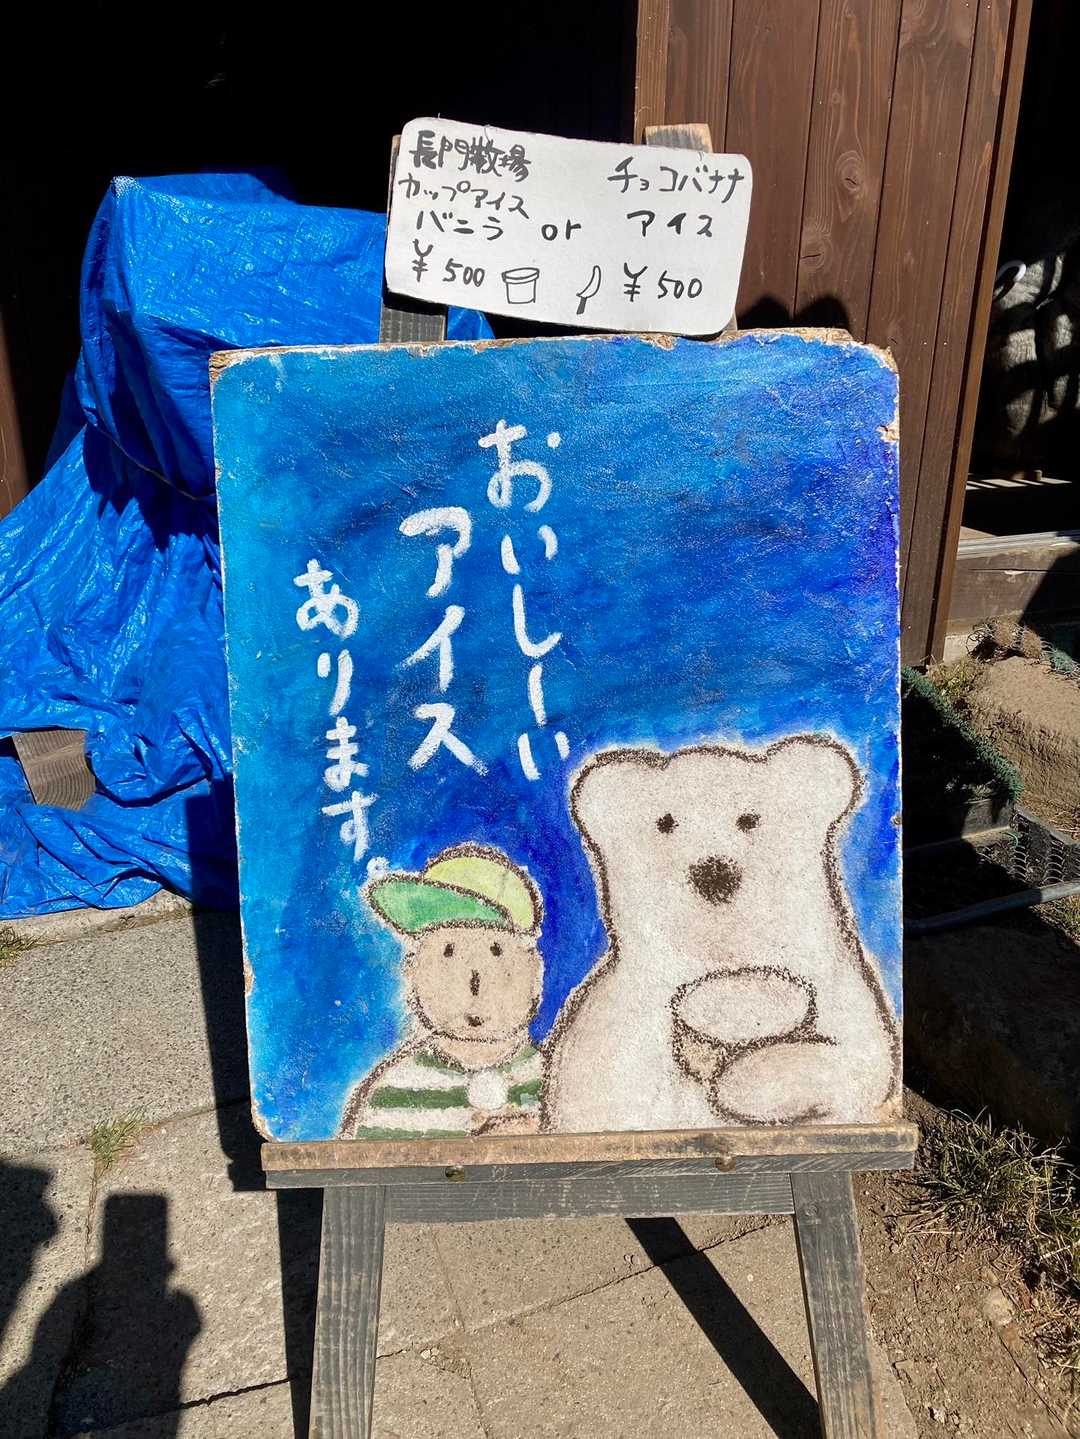 長門牧場
カップアイス
バニラ
¥500
or
チョコバナナ
アイス
¥500
おいしーい
アイス
あります。